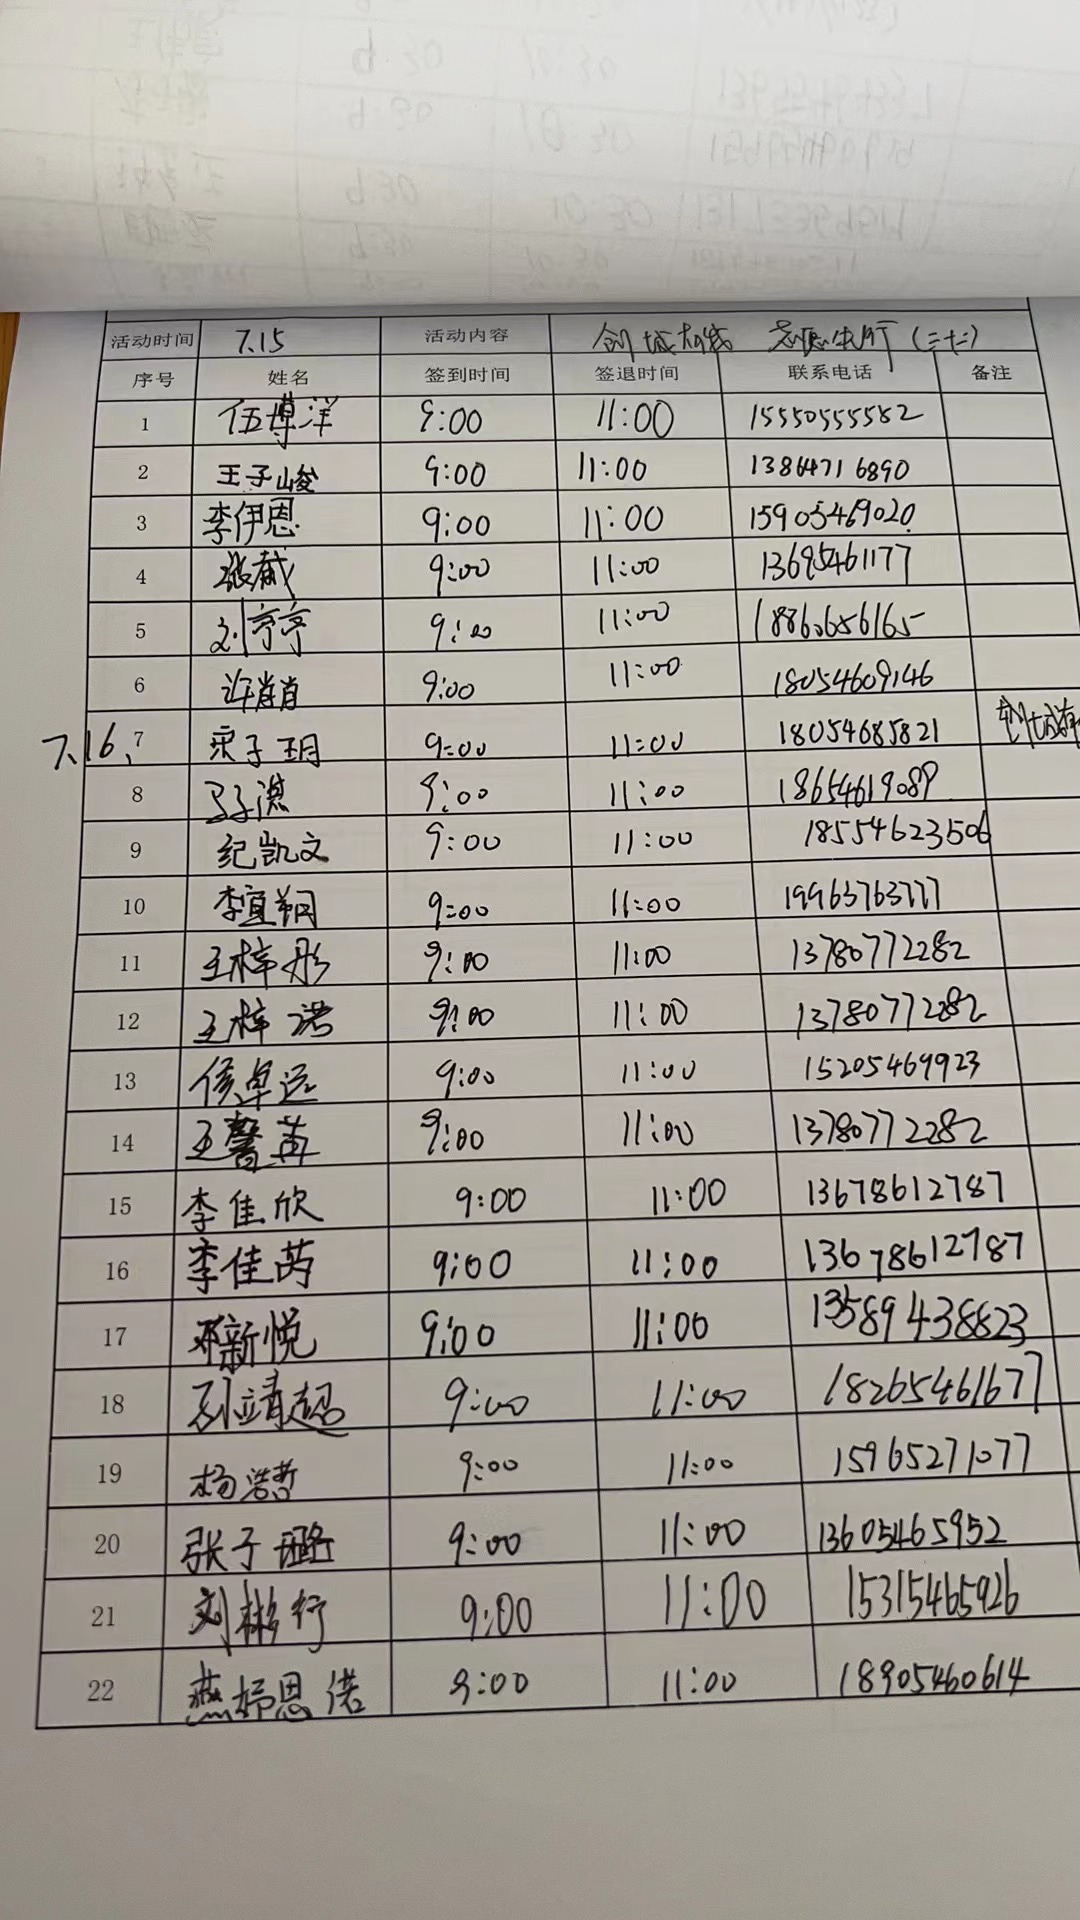 活动时间 7.15 活动内容 创城有我 志愿先行(二十二)
序号 姓名 签到时间 签退时间 联系电话 备注
1 伍博洋 9:00 11:00 15550555582
2 王子峻 9:00 11:00 13864716890
3 李伊恩 9:00 11:00 15905469020
4 张葳 9:00 11:00 13695461177
5 刘亭亭 9:00 11:00 18860656165
6 许肖肖 9:00 11:00 18054609146
7.16、 7 宋子玥 9:00 11:00 18054685821 创城有
8 9:00 11:00 18654619089
9 纪凯文 9:00 11:00 18554623506
10 李宜钢 9:00 11:00 19963763777
11 王梓彤 9:00 11:00 13780772282
12 王梓诺 9:00 11:00 13780772282
13 侯卓远 9:00 11:00 15205469923
14 王馨苒 9:00 11:00 13780772282
15 李佳欣 9:00 11:00 13678612787
16 李佳芮 9:00 11:00 13678612787
17 邓新悦 9:00 11:00 13589438823
18 孙靖超 9:00 11:00 18265461677
19 杨浩哲 9:00 11:00 15965271077
20 张子璐 9:00 11:00 13605465952
21 刘彬行 9:00 11:00 15315465926
22 燕杨恩诺 9:00 11:00 18905460614